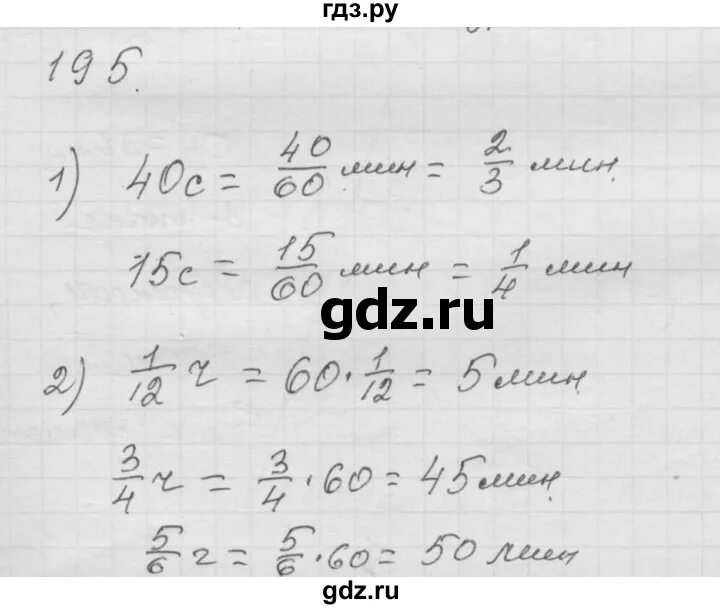 гдз.ру
195.
1) 40с = 40/60 мин = 2/3 мин.
15с = 15/60 мин = 1/4 мин
gdz.ru
2) 1/12 ч = 60 · 1/12 = 5 мин
3/4 ч = 3/4 · 60 = 45 мин.
5/6 ч = 5/6 · 60 = 50 мин
gdz.ru